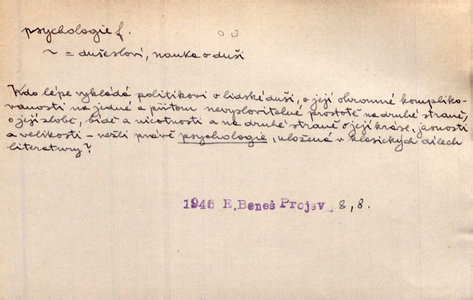 psychologie f.
~ = dušesloví, nauka o duši
Kdo lépe vykládá politikovi o lidské duši, o její ohromnéompliko-
vanosti na jedné a přitom nevyslovitelné prostotě na druhé straně,
o její zlobě, bídě a nicotnosti a na druhé straně o její kráse, jasnosti
a velikosti – nežli právě psychologie, uložená v klasických dílech
literatury?
1946 E. Beneš Projev 8,8.